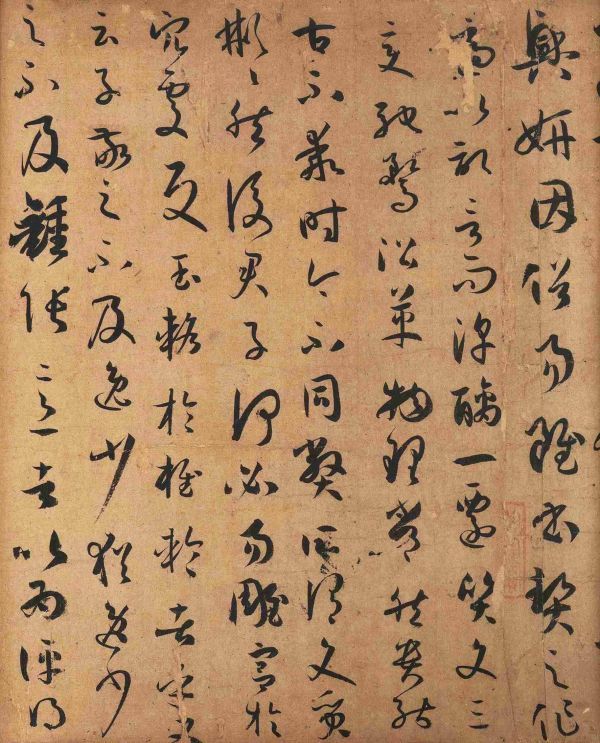 興妍因俗易雖書契之作
適以記言而淳醨一遷質文三
變馳騖沿革物理常然貴能
古不乖時今不同弊所謂文質
彬〻然後君子何必易雕宮於
穴處反玉輅於椎輪者乎又
云子敬之不及逸少猶逸少
之不及鍾張意者以為評得